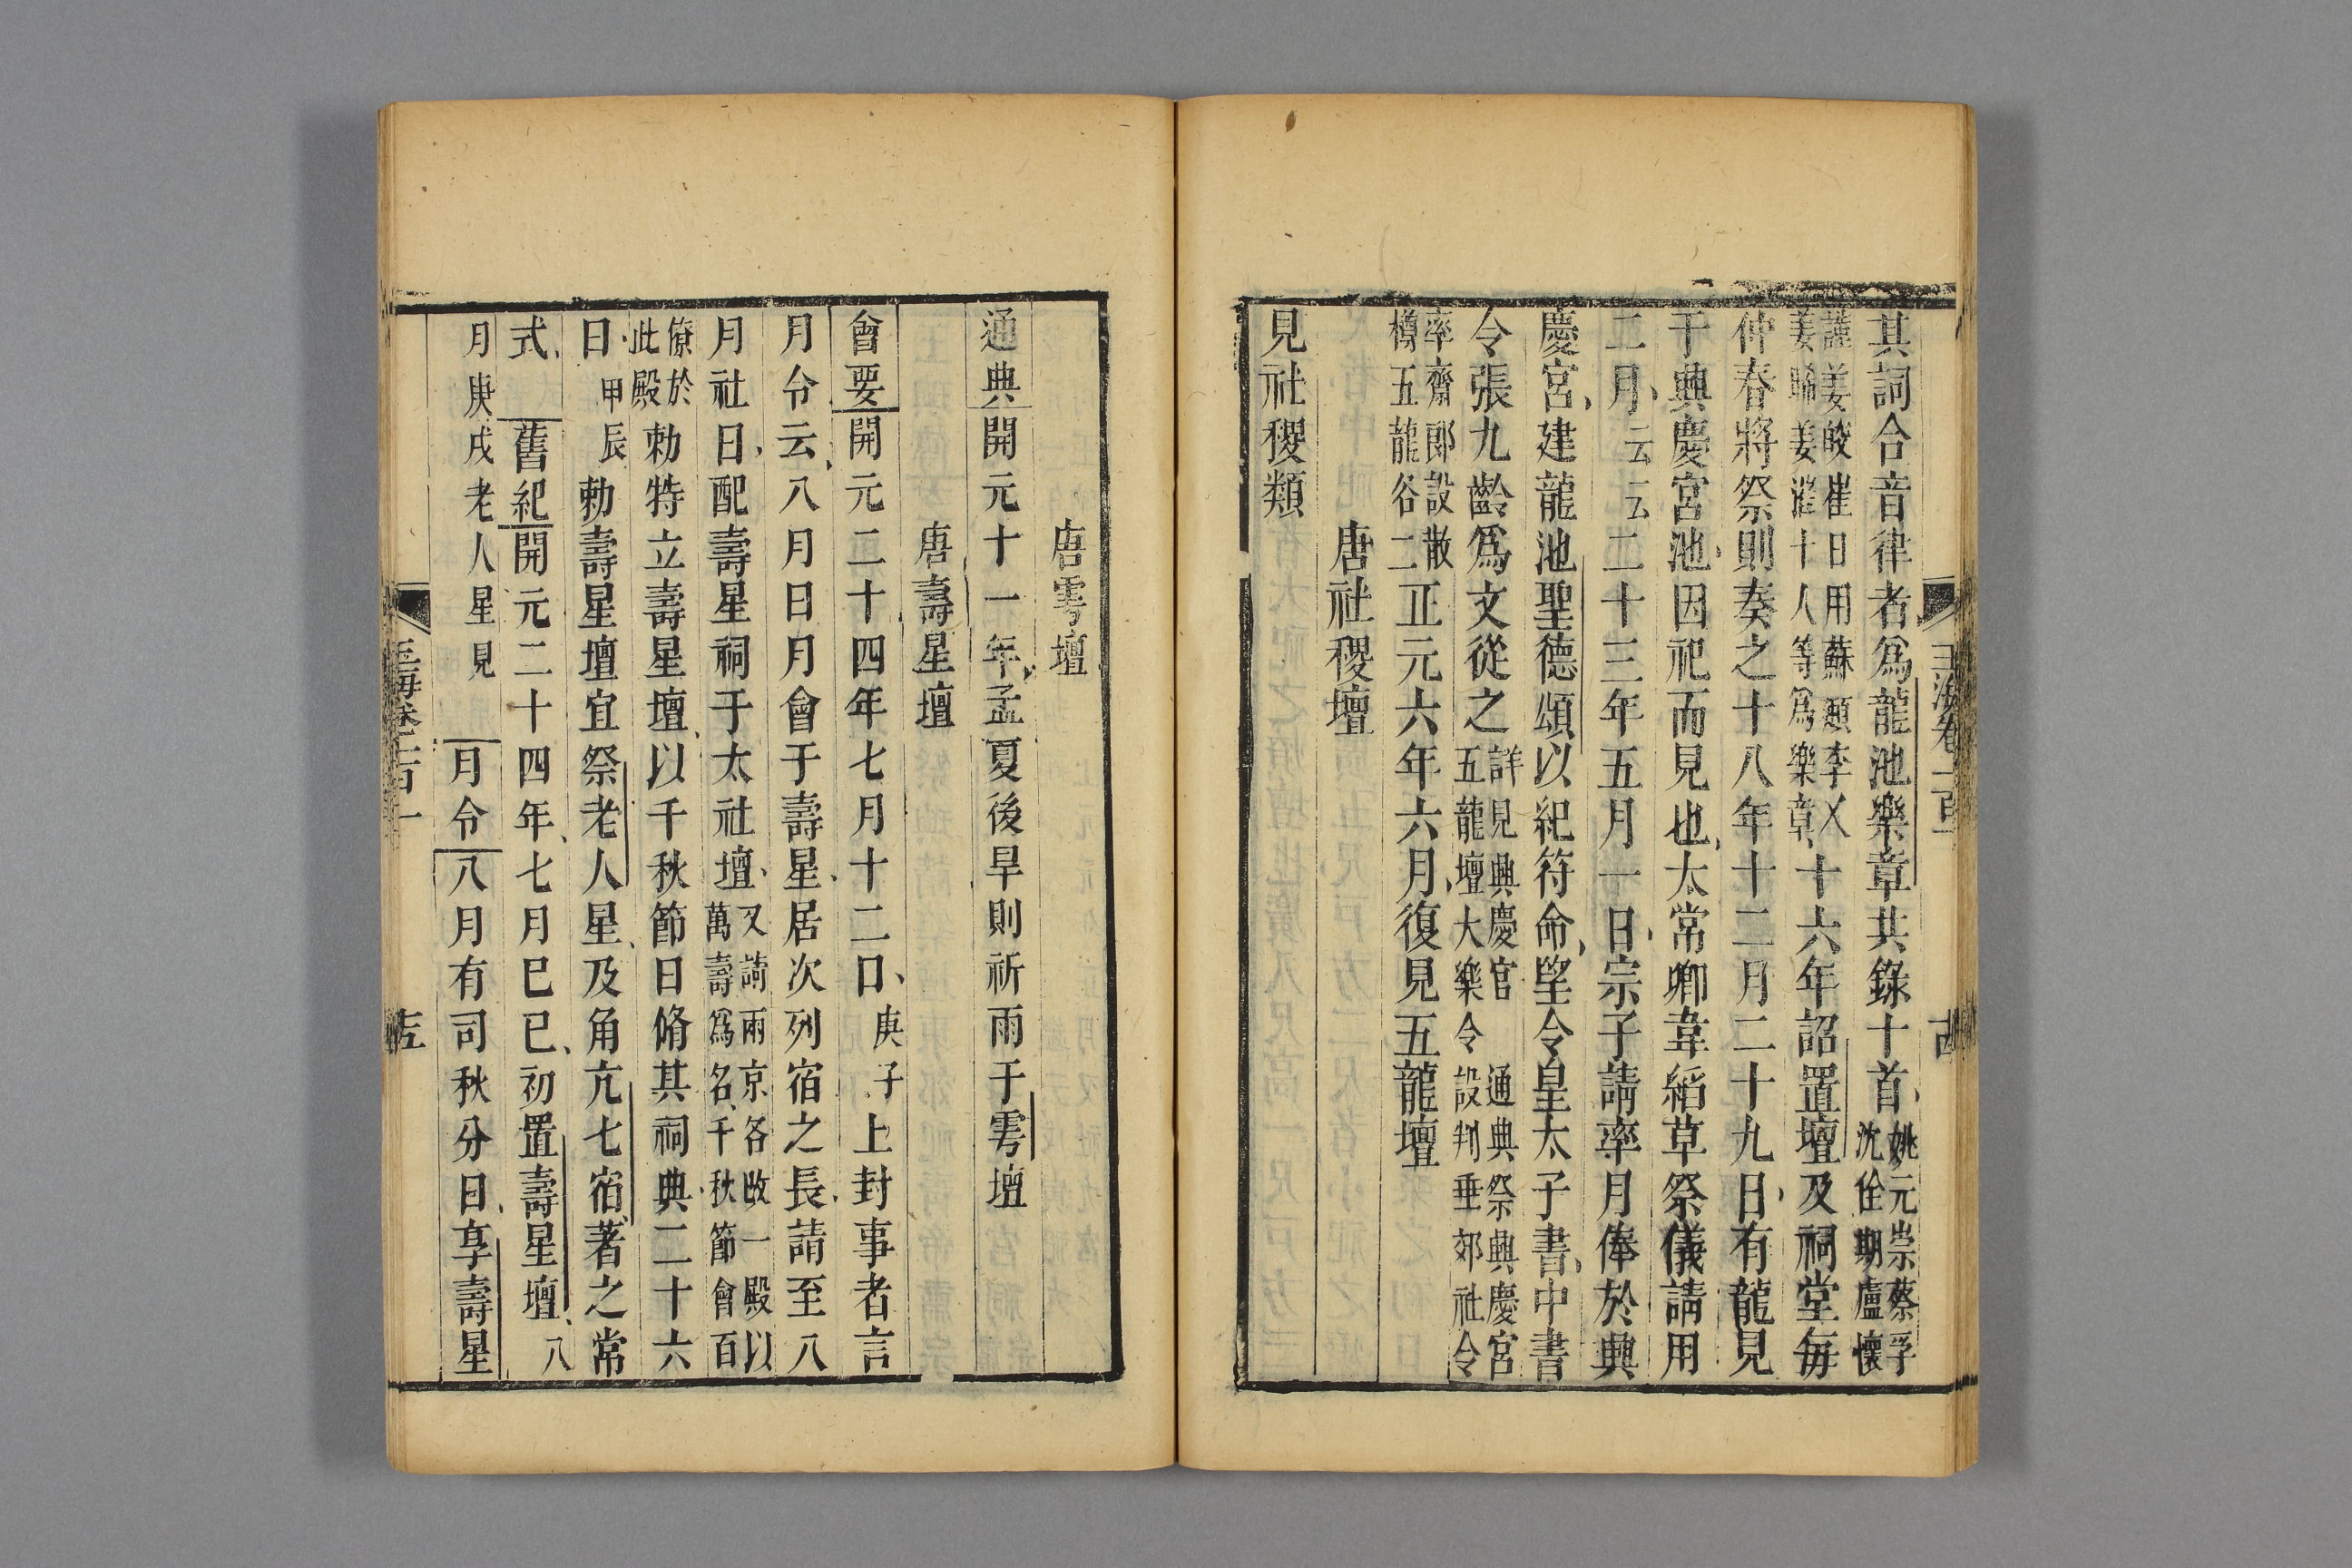 其詞合音律者爲龍池樂章共錄十首姚元崇蔡孚沈佺期盧懷
謹姜皎崔日用蘇頲李乂姜晞姜漼十人等爲樂章十六年詔置壇及祠堂每
仲春將祭則奏之十八年十二月二十九日有龍見
于興慶宮池因祀而見也太常卿韋縚草祭儀請用
二月云云二十三年五月一日宗子請率月俸於興
慶宮建龍池聖德頌以紀符命望令皇太子書中書
令張九齡爲文從之詳見興慶宮五龍壇大樂令通典祭興慶宮設判垂郊社令
率齋郎設散樽五龍各二正元六年六月復見五龍壇
唐社稷壇
見社稷類
玉海卷一百一
古
唐雩壇
通典開元十一年孟夏後旱則祈雨于雩壇
唐壽星壇
會要開元二十四年七月十二日庚子上封事者言
月令云八月日月會于壽星居次列宿之長請至八
月社日配壽星祠于太社壇又請兩京各改一殿以萬壽爲名千秋節會百
僚於此殿勅特立壽星壇以千秋節日脩其祠典二十六
日甲辰勅壽星壇宜祭老人星及角亢七宿著之常
式舊紀開元二十四年七月巳巳初置壽星壇八
月庚戌老人星見月令八月有司秋分日享壽星
玉海卷一百一